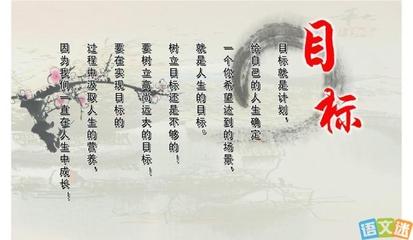 目标
目标就是计划，
给自己的人生确定
一个你希望达到的场景，
就是人生的目标。
树立目标还是不够的！
要树立高尚远大的目标！
要在实现目标的
过程中汲取人生的营养，
因为我们一直在人生中成长！
语文迷